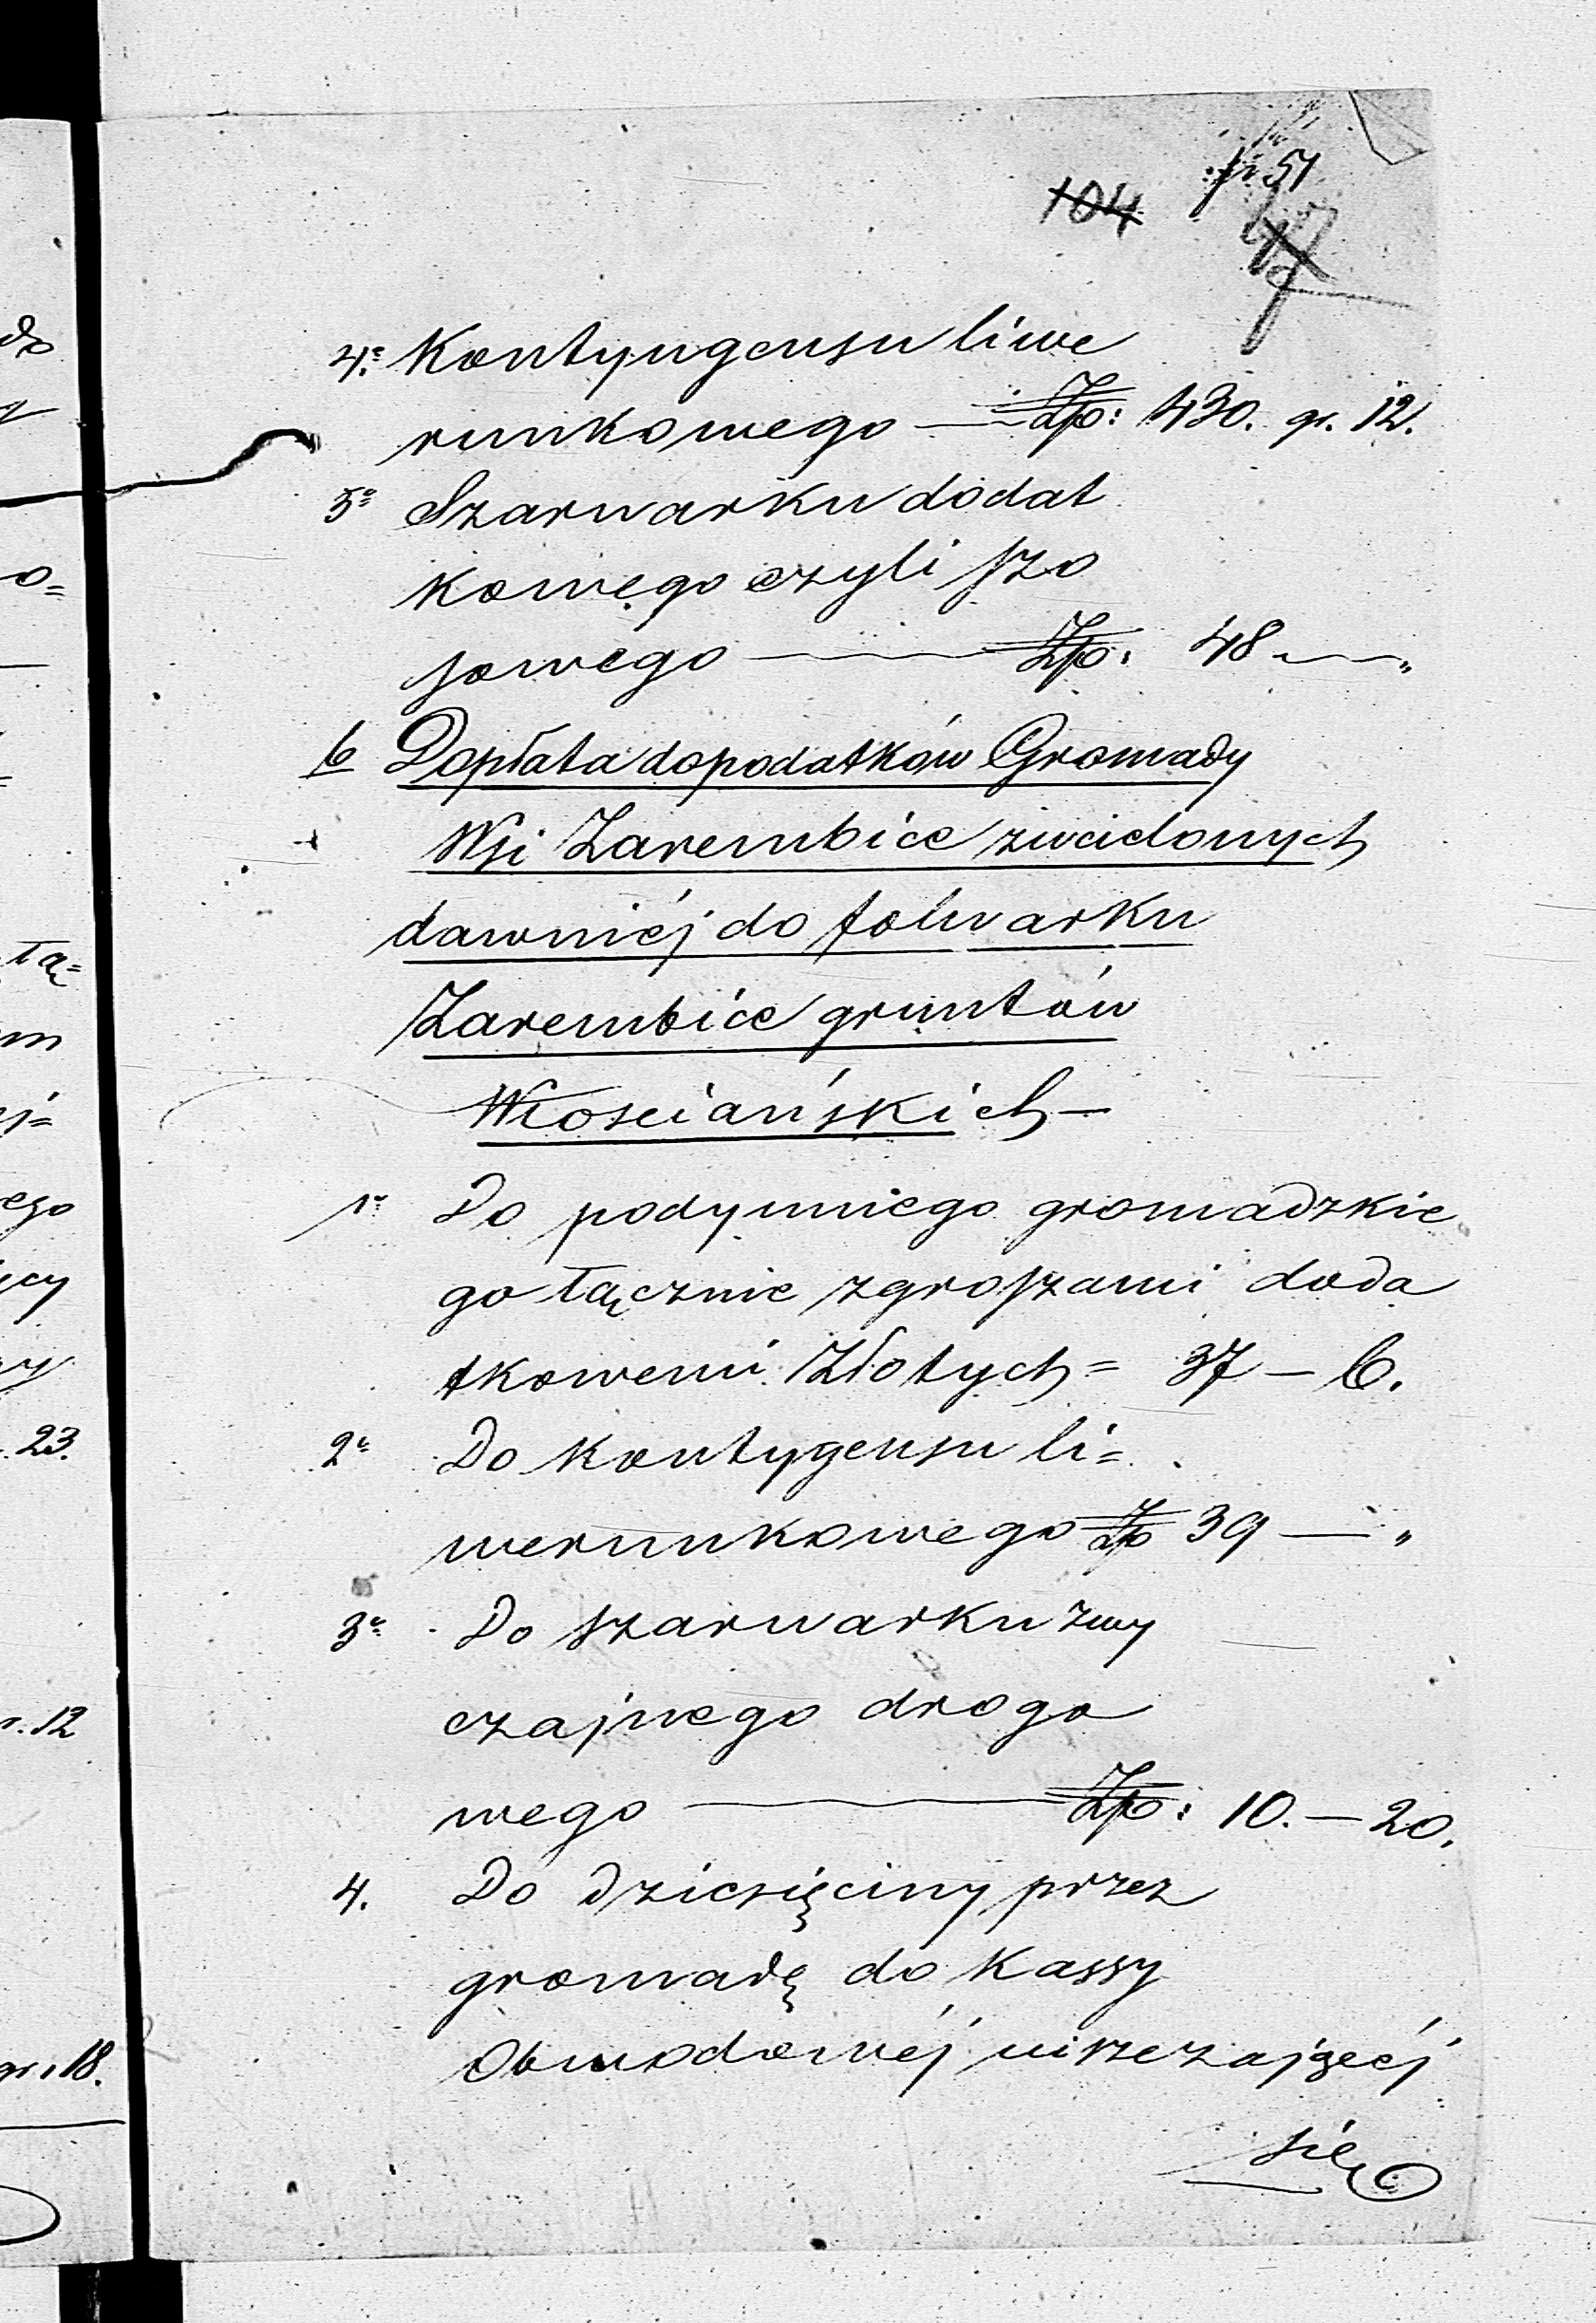 104
51
4º Kontyngensu liwe
runkowego — Złp: 430. gr. 12.
5º Szarwarku dodat
kowego czyli szo
sowego — Złp: 48 — „
6 Dopłata do podatków Gromady
Wsi Zarembice zwcielonych
dawniéj do folwarku
Zarembice gruntów
Włościańskich —
1º Do podymniego gromadzkie
go łącznie z groszami doda
tkowemi Złotych = 37 — 6.
2º Do Kontygensu li=
werunkowego Złp 39 — „
3º Do szarwarku zwy
czajnego drogo
wego — Złp: 10. — 20.
4. Do dziesięciny przez
gromadę do Kassy
Obwodowéj uiszczającéj
się
do
o=
łą=
m
j=
ego
cy
23.
12
gr. 18.